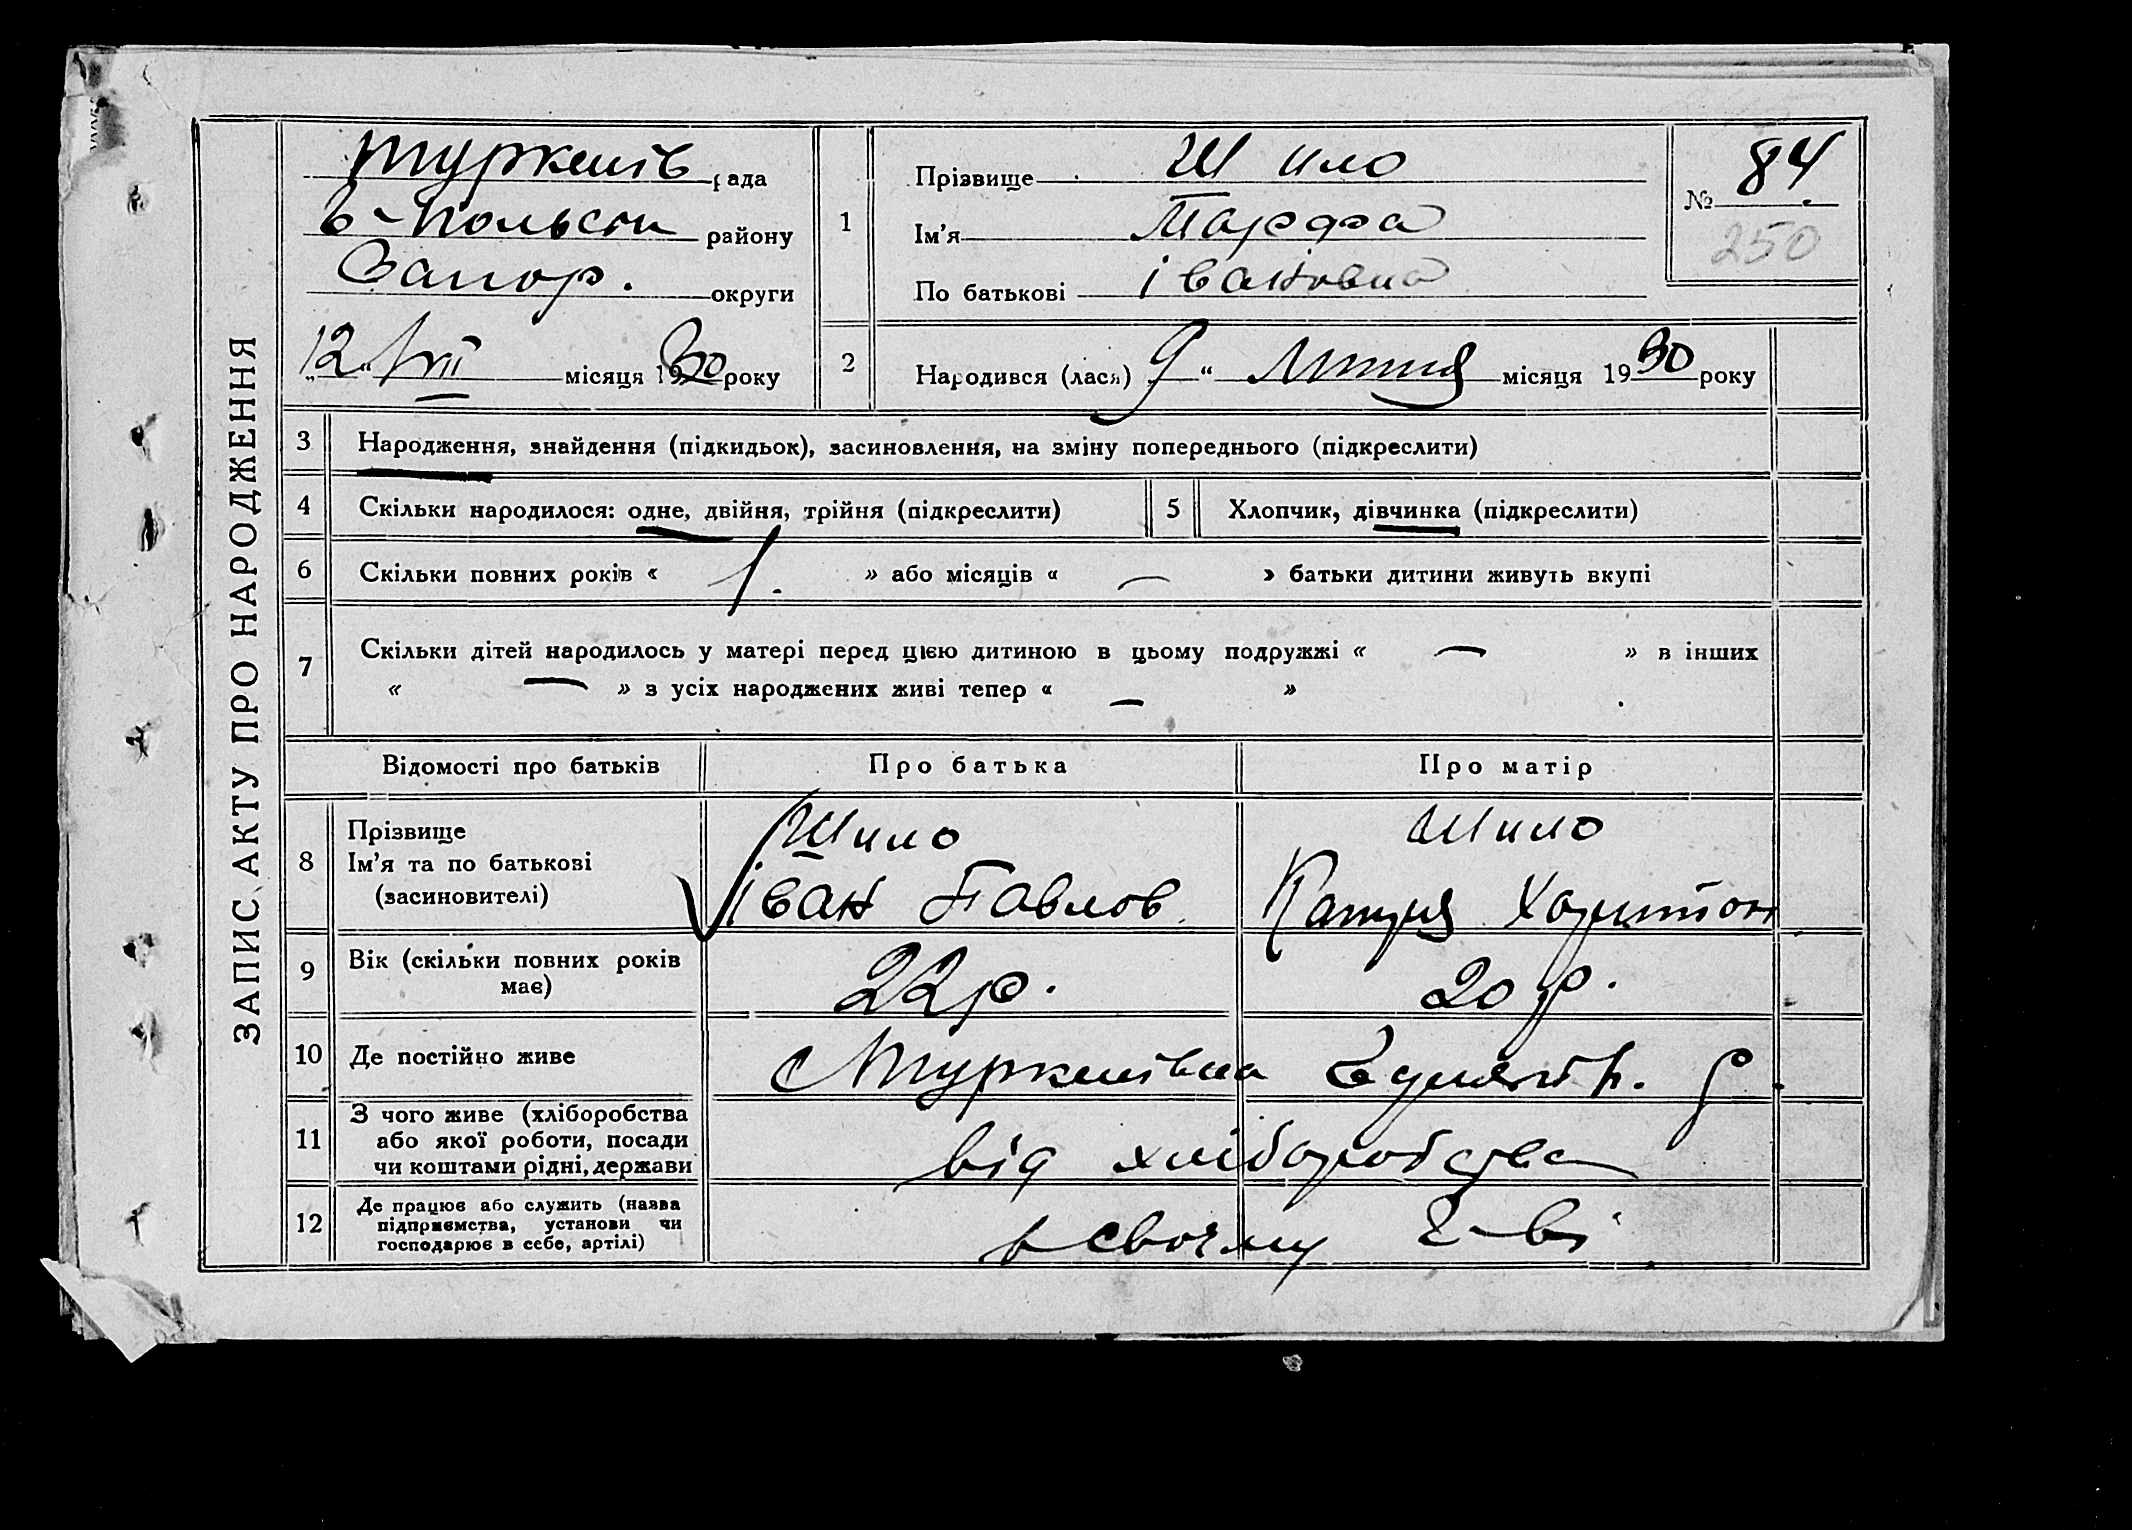 ЗАПИС АКТУ ПРО НАРОДЖЕННЯ
Туркенів рада
району
Запор. округи
„12“ VII місяця 1930 року
1
Прізвище Шило
Ім'я Марфа
По батькові Івановна
№ 84
250
2
Народився (лася) 9 “ Липня місяця 1930 року
3 Народження, знайдення (підкидьок), засиновлення, на зміну попереднього (підкреслити)
4 Скільки народилося: одне, двійня, трійня (підкреслити) 5 Хлопчик, дівчинка (підкреслити)
6 Скільки повних років « 1. » або місяців « — » батьки дитини живуть вкупі
7 Скільки дітей народилось у матері перед цією дитиною в цьому подружжі « — » в інших
« — » з усіх народжених живі тепер « — »
Відомості про батьків Про батька Про матір
8 Прізвище
Ім'я та по батькові
(засиновителі)
Шило
Іван Павлов
Шило
Харитон
9 Вік (скільки повних років
має)
22 р. 20 р.
10 Де постійно живе
11 З чого живе (хліборобства
або якої роботи, посади
чи коштами рідні, держави
від хліборобства
12 Де працює або служить (назва
підприємства, установи чи
господарює в себе, артілі)
в своєму г-ві